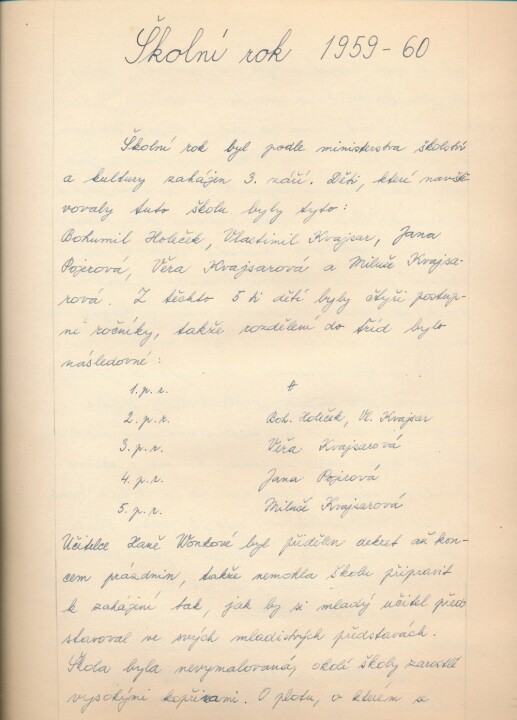 Školní rok 1959-60
Školní rok byl podle ministerstva školství
a kultury zahájen 3. září. Děti, které navště
vovaly tuto školu byly tyto:
Bohumil Holeček, Vlastimil Kvajsar, Jana
Pojerová, Věra Kvajsarová a Miluše Kvajsa-
rová. Z těchto 5ti dětí byly čtyři postup-
né ročníky, takže rozdělení do tříd bylo
následovné:
1. p. r. #
2. p. r. Boh. Holeček, Vl. Kvajsar
3. p. r. Věra Kvajsarová
4. p. r. Jana Pojerová
5. p. r. Miluše Kvajsarová
Učitelce Haně Wonkové byl přidělen dekret až kon-
cem prázdnin, takže nemohla školu připravit
k zahájení tak, jak by si mladý učitel před
stavoval ve svých mladistvých představách.
Škola byla nevymalovaná, okolí školy zarostlé
vysokými kopřivami. O plotu, o kterém se